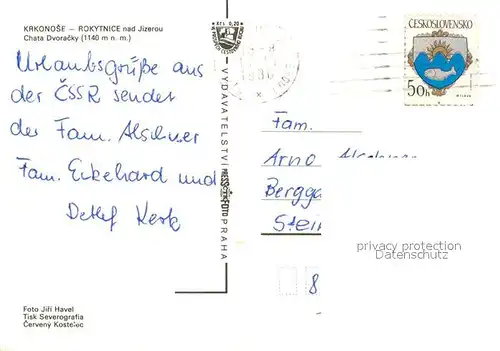 KRKONOŠE — ROKYTNICE nad Jizerou
Chata Dvoračky (1140 m n. m.)
Urlaubsgrüße aus
der ČSSR sendet
der Fam.
Fam. Eckehard und
Detlef Kerk
Foto Jiří Havel
Tisk Severografia
Červený Kostelec
Kčs 0,20
VYDAVATELSTVÍ PRESSFOTO PRAHA
ČESKOSLOVENSKO
50h
Fam.
Arno
Bergga
Stein
8
privacy protection
Datenschutz